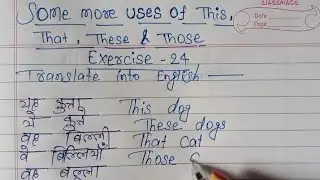 CLASSMATE
Date
Page
Some more uses of This,
That, These & Those
Exercise - 24
Translate into English
यह कुत्ता This dog
ये कुत्ते These dogs
वह बिल्ली That cat
वे बिल्लियाँ Those
वह बल्ला